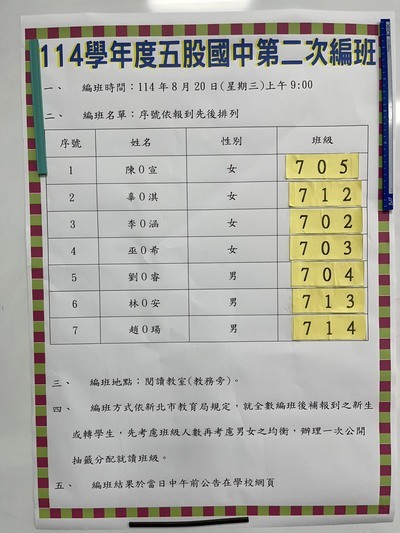 114學年度五股國中第二次編班
一、 編班時間：114 年 8 月 20 日(星期三)上午 9:00
二、 編班名單：序號依報到先後排列
序號 姓名 性別 班級
1 陳O宣 女 705
2 辜O淇 女 712
3 李O涵 女 702
4 巫O希 女 703
5 劉O睿 男 704
6 林O安 男 713
7 趙O瑒 男 714
三、 編班地點：閱讀教室(教務旁)。
四、 編班方式依新北市教育局規定，就全數編班後補報到之新生
或轉學生，先考慮班級人數再考慮男女之均衡，辦理一次公開
抽籤分配就讀班級。
五、 編班結果於當日中午前公告在學校網頁